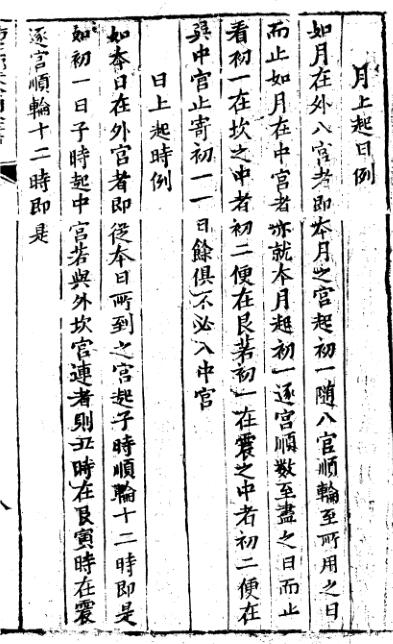 月上起日例
如月在外八宮者即本月之宮起初一隨八宮順輪至所用之日
而止如月在中宮者亦就本月起初一逐宮順數至盡之日而止
看初一在坎之中者初二便在艮若初一在震之中者初二便在
巽中宮止寄初一一日餘俱不必入中宮
日上起時例
如本日在外宮者即從本日所到之宮起子時順輪十二時即是
如初一日子時起中宮若與外坎宮連者則丑時在艮寅時在震
逐宮順輪十二時即是
八